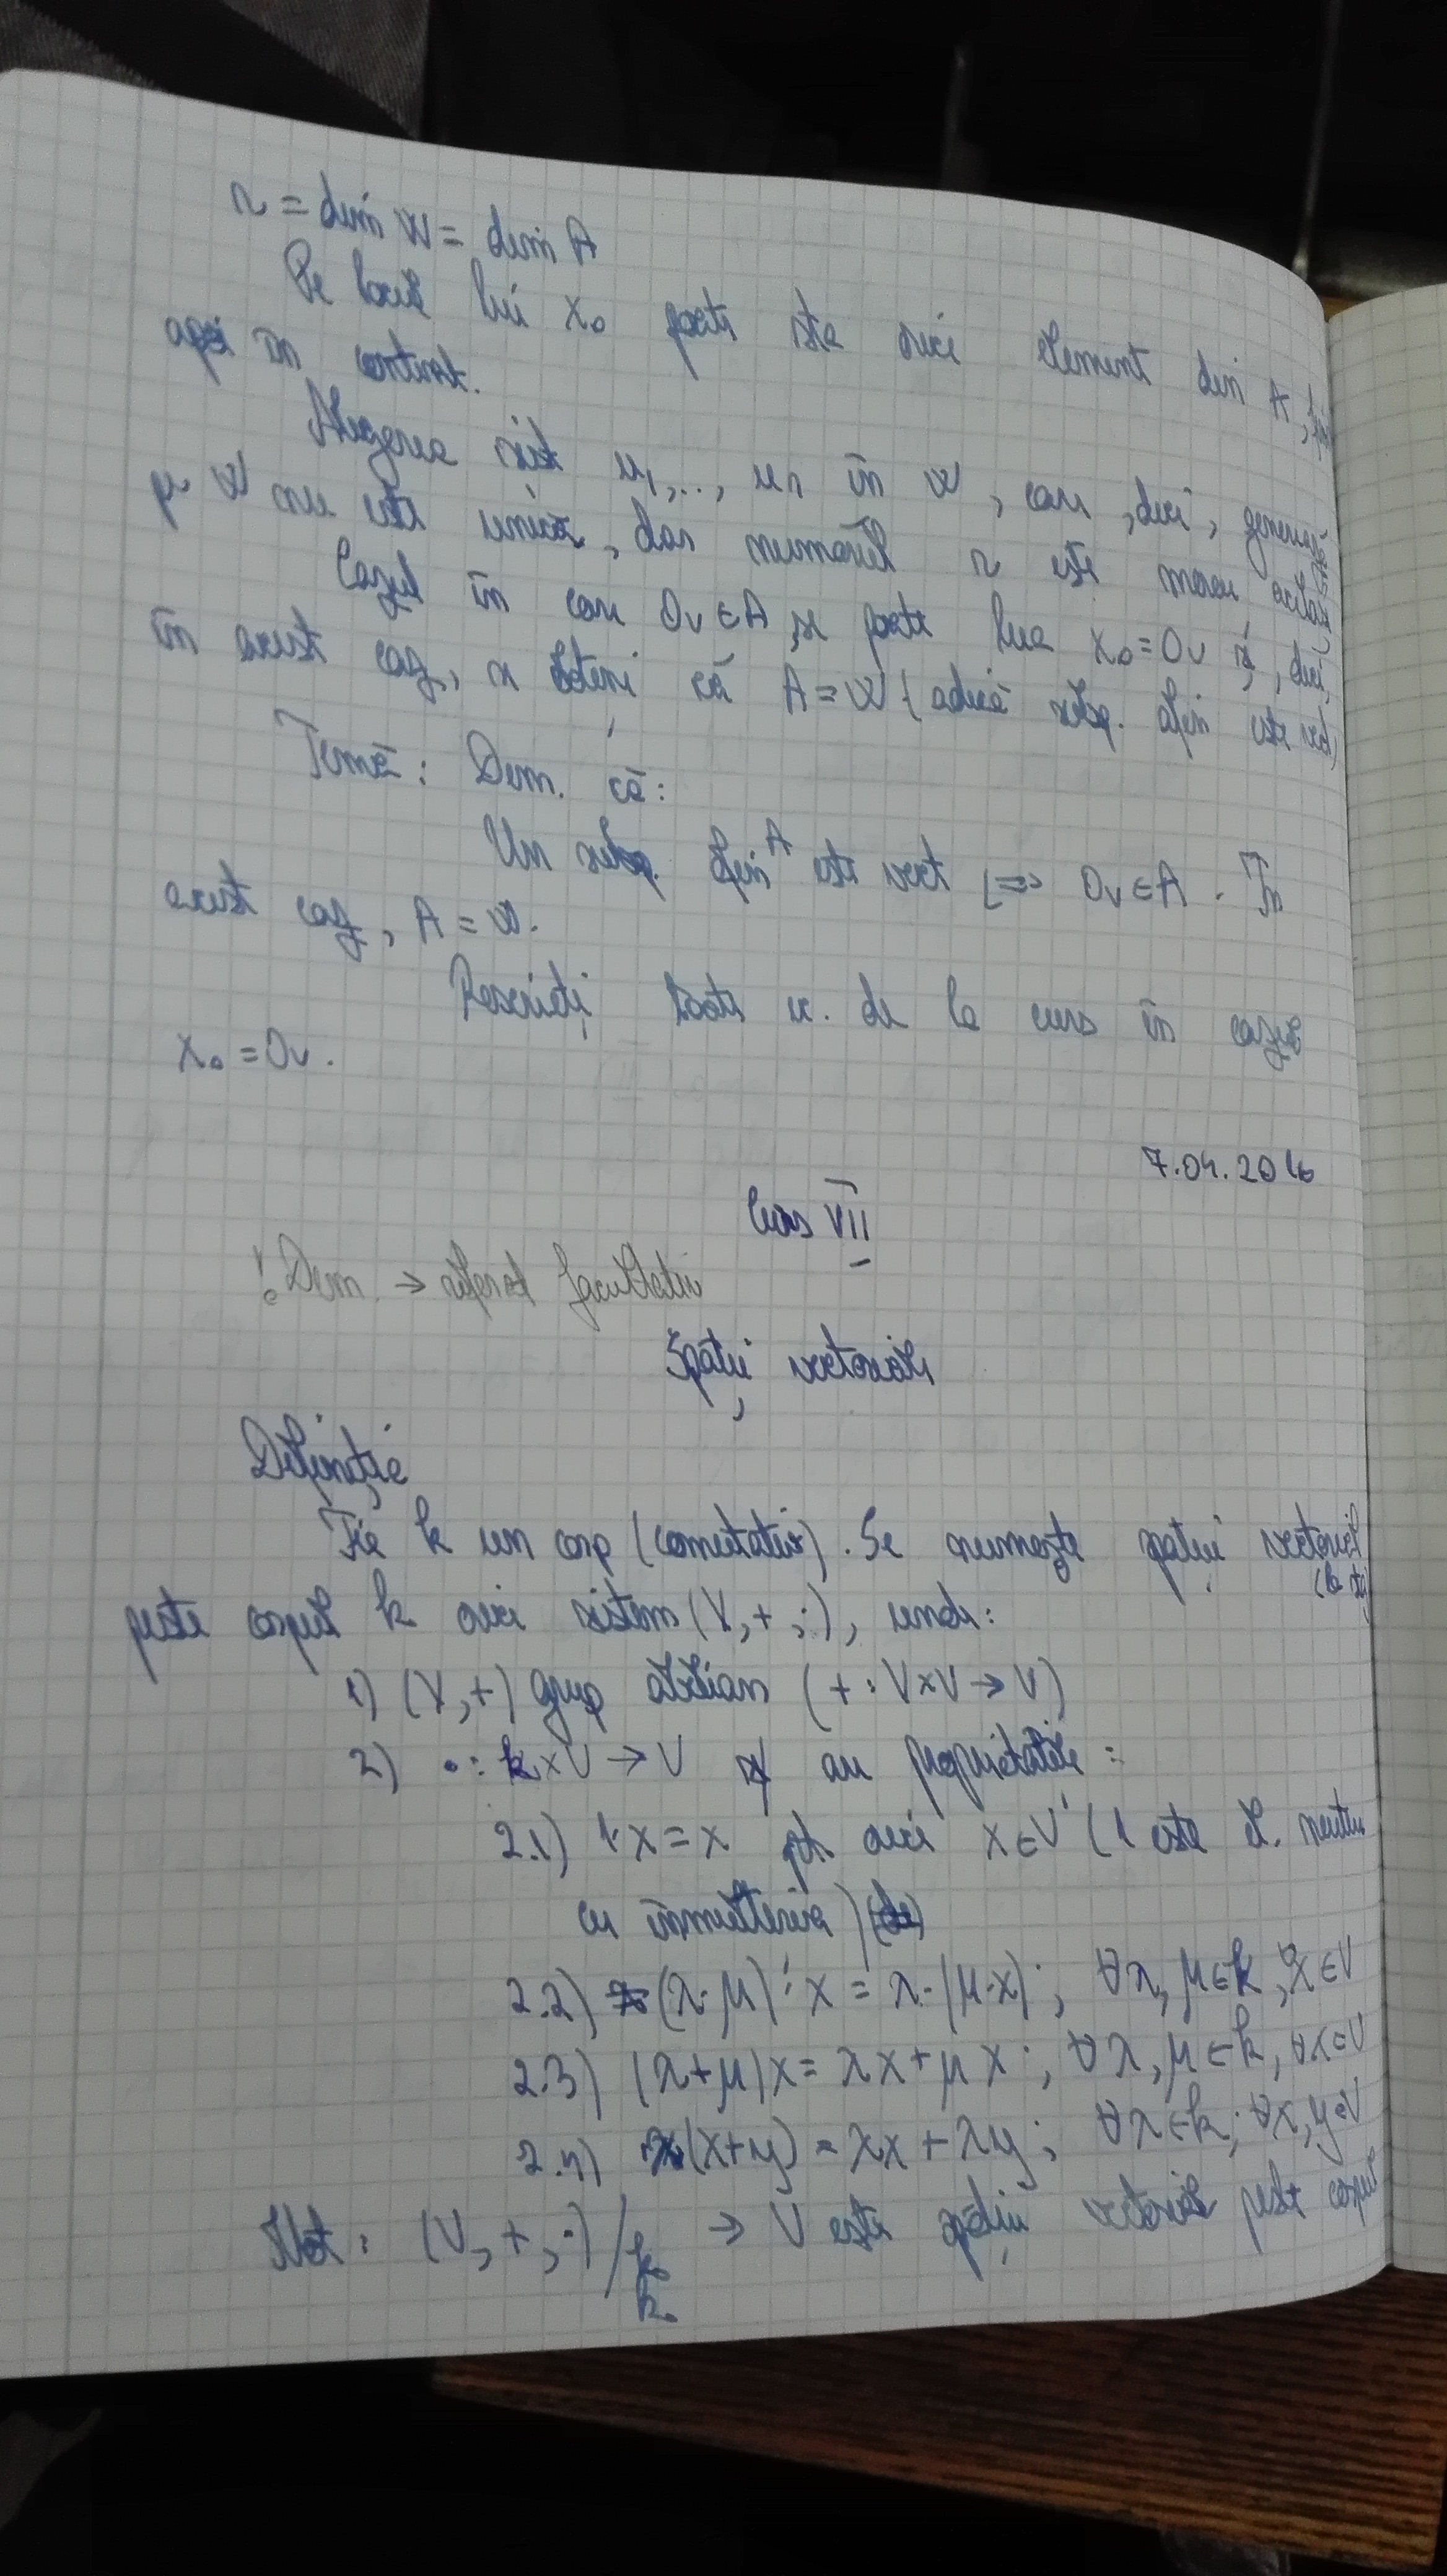 r = dim W = dim A
Pe locul lui x₀ poate sta orice element din A, fix
apoi în context.
Alegerea sist u₁,..., uᵣ în W, care, deci, generează
pe W nu este unică, dar numărul r este mereu același
Cazul în care 0v ∈ A, se poate lua x₀ = 0v și, deci,
în acest caz, se obține că A = W (adică subsp. afin este vect)
Temă: Dem. că:
Un subsp. afin A este vect <=> 0v ∈ A. În
acest caz, A = W.
Rescrieți toate ec. de la curs în cazul
x₀ = 0v.
7.04.2016
Curs VII
! Dem. → referat facultativ
Spații vectoriale
Definiție
Fie k un corp (comutativ). Se numește spațiu vectorial
(la stg)
peste corpul k orice sistem (V, +, ·), unde:
1) (V, +) grup abelian (+ : V×V → V)
2) · : k×V → V au proprietățile:
2.1) 1·x = x pt orice x ∈ V (1 este el. neutru
cu înmulțirea)
2.2) (λ·μ)·x = λ·(μ·x); ∀λ, μ ∈ k, x ∈ V
2.3) (λ+μ)x = λx + μx; ∀λ, μ ∈ k, ∀x ∈ V
2.4) λ(x+y) = λx + λy; ∀λ ∈ k; ∀x, y ∈ V
Not: (V, +, ·)/k → V este spațiu vectorial peste corpul
k.